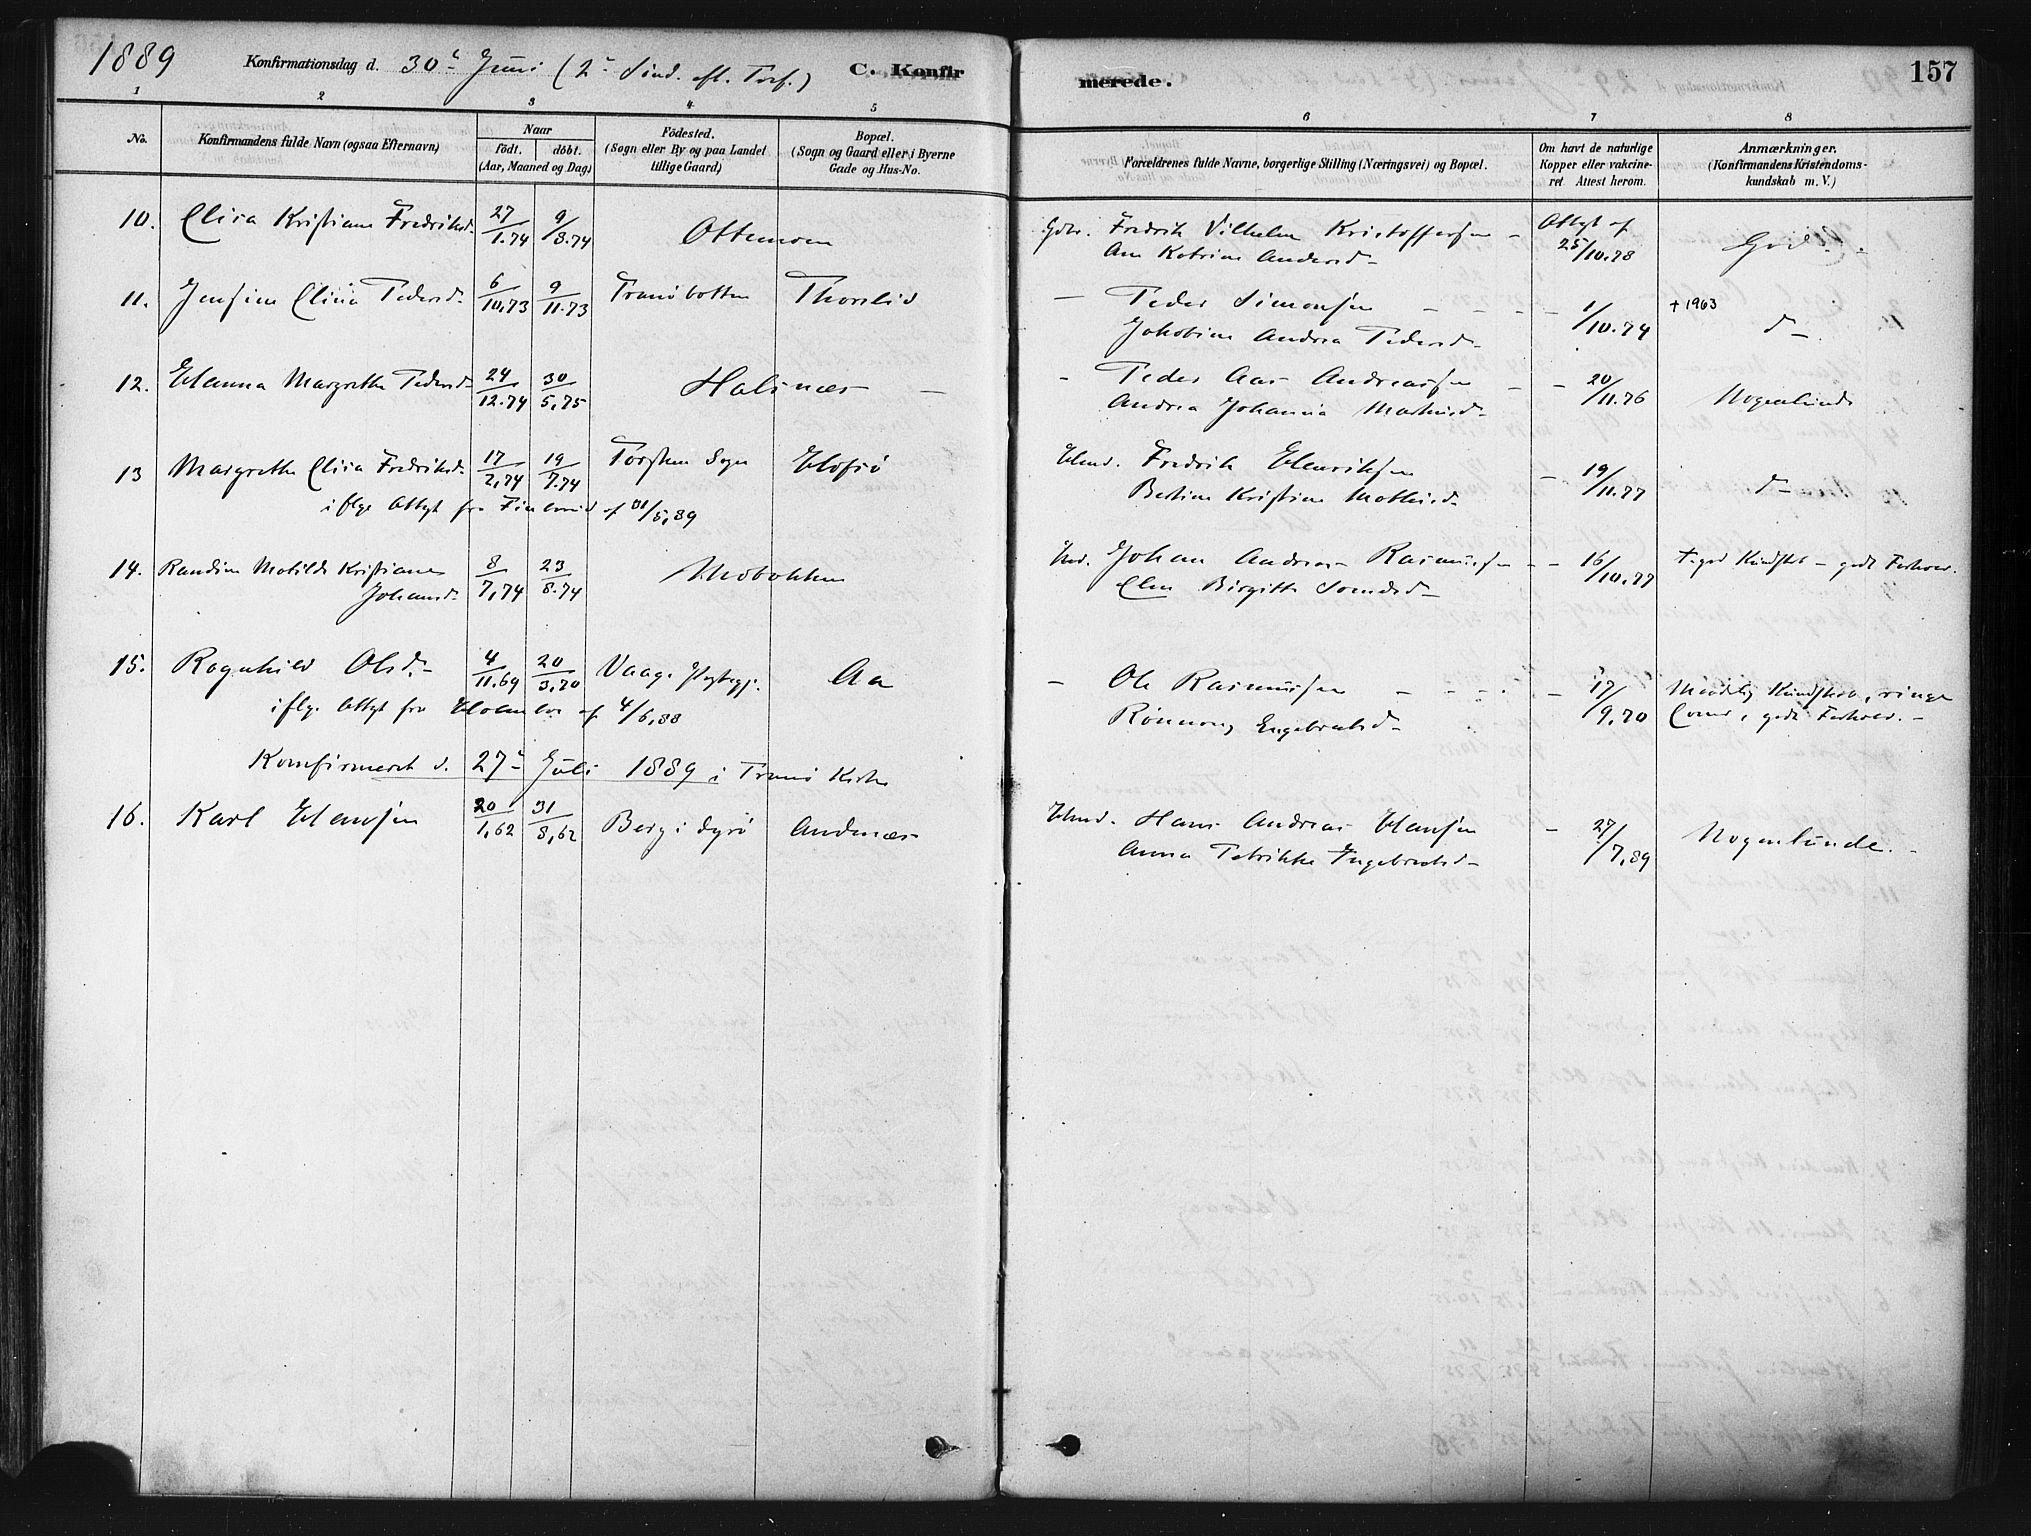 1889 Konfirmationsdag d. 30 Juni (2 Sönd. eft. Tref.) C. Konfirmerede. 157
1 2 3 4 5 6 7 8
No. Konfirmandens fulde Navn (ogsaa Efternavn) Naar födt. döbt. (Aar, Maaned og Dag) Födested. (Sogn eller By og paa Landet tillige Gaard) Bopæl. (Sogn og Gaard eller i Byerne Gade og Hus-No. Forældrenes fulde Navne, borgerlige Stilling (Næringsvei) og Bopæl. Om havt de naturlige Kopper eller vakcineret Attest herom. Anmærkninger. (Konfirmandens Kristendomskundskab m. V.)
10. Elisa Kristiane Fredriksd. 27/1.74 9/3.74 Ottemoen Gdbr. Fredrik Vilhelm Kristoffersen – Attest af 25/10.78 God.
Ane Katrine Andersd
11. Jensine Elisa Pedersd. 6/10.73 9/11.73 Tranöbotten Thorslid – Peder Simonsen 1/10.74 + 1963 d–
Jakobine Andrea Pedersd
12. Hanna Margrethe Pedersd 24/12.74 30/5.75 Halsnæs – – Peder Aas Andreassen – – 20/11.76 Nogenlunde
Andrea Johanna Mathisd–
13 Margrethe Elisa Fredriksd 17/2.74 19/7.74 Torsken Sogn Hofsö Hmd. Fredrik Henriksen – 19/11.77 d–
iflge Attest fra af 31/5.89 Bertine Kristine Mathisd
14. Randine Matilde Kristiane 8/7.74 23/8.74 Hmd. Johan Andreas Rasmussen – – 16/10.77 Kundskab – godt Forhold.
Johansd Elen Birgitte
15. Ragnhild Olsd. 4/11.69 20/3.70 Vaage Prstgj. Aa – Ole Rasmussen – 17/9.70 Maadelig Kundskab, ringe
iflge Attest fra af 4/6.88 Rønnoug Engebretsd godt Forhold. –
Konfirmeret d. 27 Juli 1889 i Tranö Kirke
16. Karl Hansen 20/1.62 31/8.62 Berg i Dyrö Andnæs Hmd. Hans Andreas Hansen – 27/7.89 Nogenlunde. –
Anna Petrikke Ingebretsd–